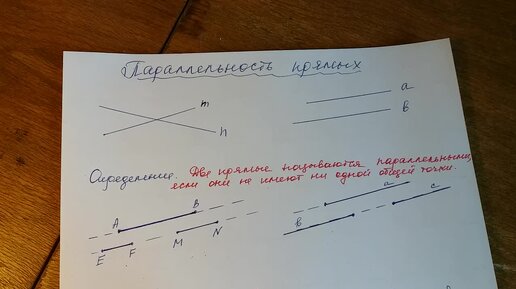 Параллельность прямых
m
n
a
b
Определение. Две прямые называются параллельными,
если они не имеют ни одной общей точки.
A B
E F M N
a
c
b